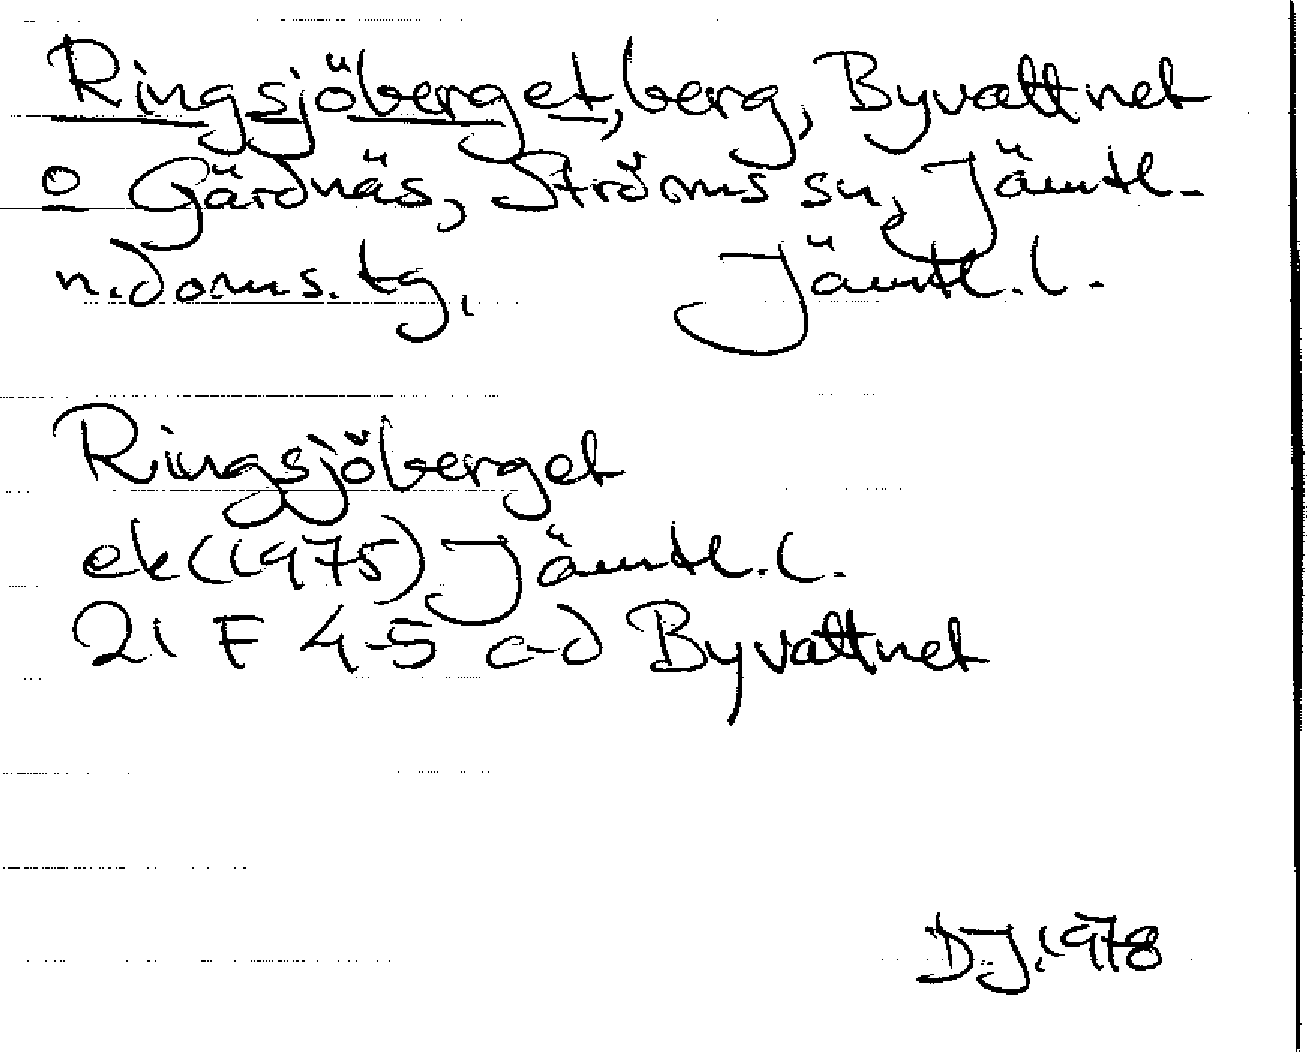 Ringsjöberget, berg, Byvattnet
o Gärdnäs, Ströms sn, Jämtl.
n. doms. tg, Jämtl. l.
Ringsjöberget
ek (1975) Jämtl. l.
21 F 4-5 c-d Byvattnet
D.J. 1978